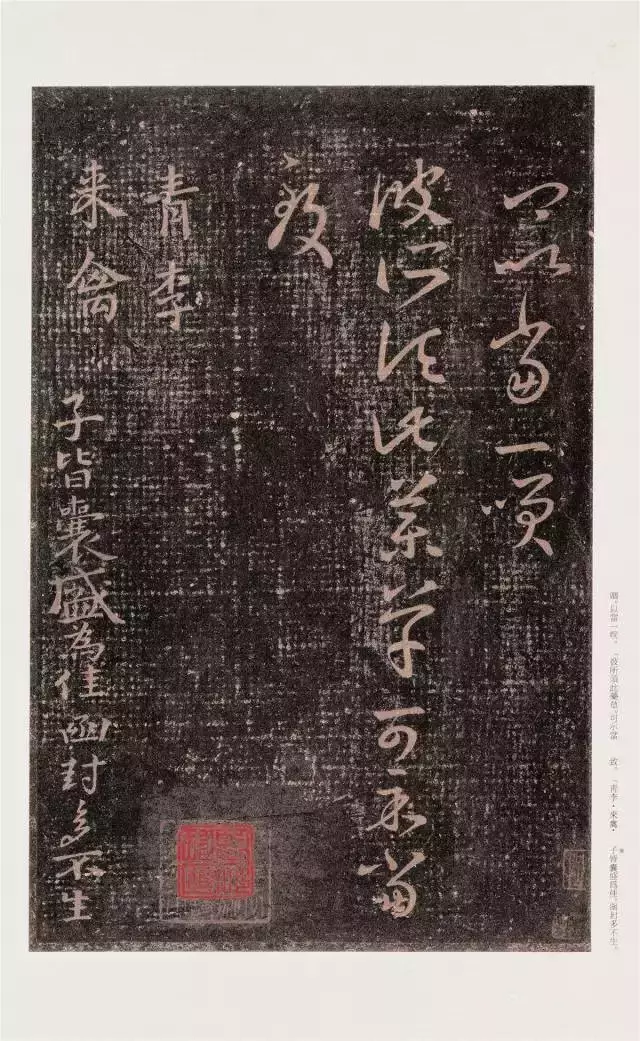 卿以當一咲
彼所須此藥草可示當
致
青李
来禽
子皆囊盛為佳函封多不生
卿。以當一咲。「彼所須此藥草。可示當　致。「青李・來禽・　子皆囊盛爲佳。函封多不生。